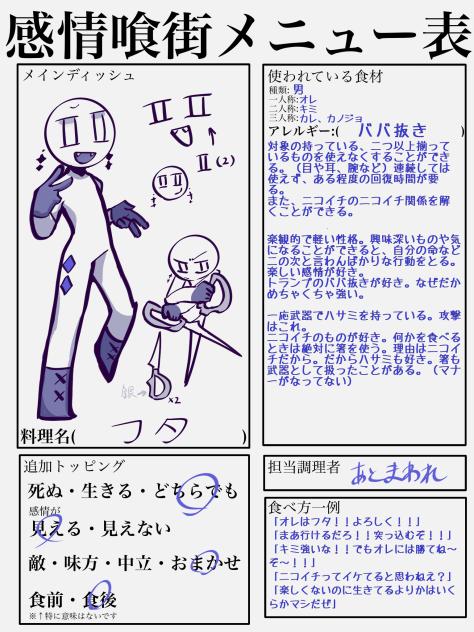 感情喰街メニュー表
メインディッシュ
II II
II (2)
銀→
×2
料理名( フタ )
使われている食材
種類: 男
一人称:オレ
二人称:キミ
三人称:カレ、カノジョ
アレルギー:( ババ抜き )
対象の持っている、二つ以上揃って
いるものを使えなくすることができ
る。（目や耳、腕など）連続しては
使えず、ある程度の回復時間が要
る。
また、ニコイチのニコイチ関係を解
くことができる。
楽観的で軽い性格。興味深いものや気
になることができると、自分の命など
二の次と言わんばかりな行動をとる。
楽しい感情が好き。
トランプのババ抜きが好き。なぜだか
めちゃくちゃ強い。
一応武器でハサミを持っている。攻撃
はこれ。
ニコイチのものが好き。何かを食べる
ときは絶対に箸を使う。理由はニコイ
チだから。だからハサミも好き。箸も
武器として扱ったことがある。（マナ
ーがなってない）
追加トッピング
死ぬ・生きる・どちらでも
感情が
見える・見えない
敵・味方・中立・おまかせ
食前・食後
※↑特に意味はないです
担当調理者 あとまわれ
食べ方一例
「オレはフタ！！よろしく！！」
「まあ行けるだろ！！突っ込むぞ！！」
「キミ強いな！！でもオレには勝てね〜
ぞ〜！！」
「ニコイチってイケてると思わねえ？」
「楽しくないのに生きてるよりかはいく
らかマシだぜ」